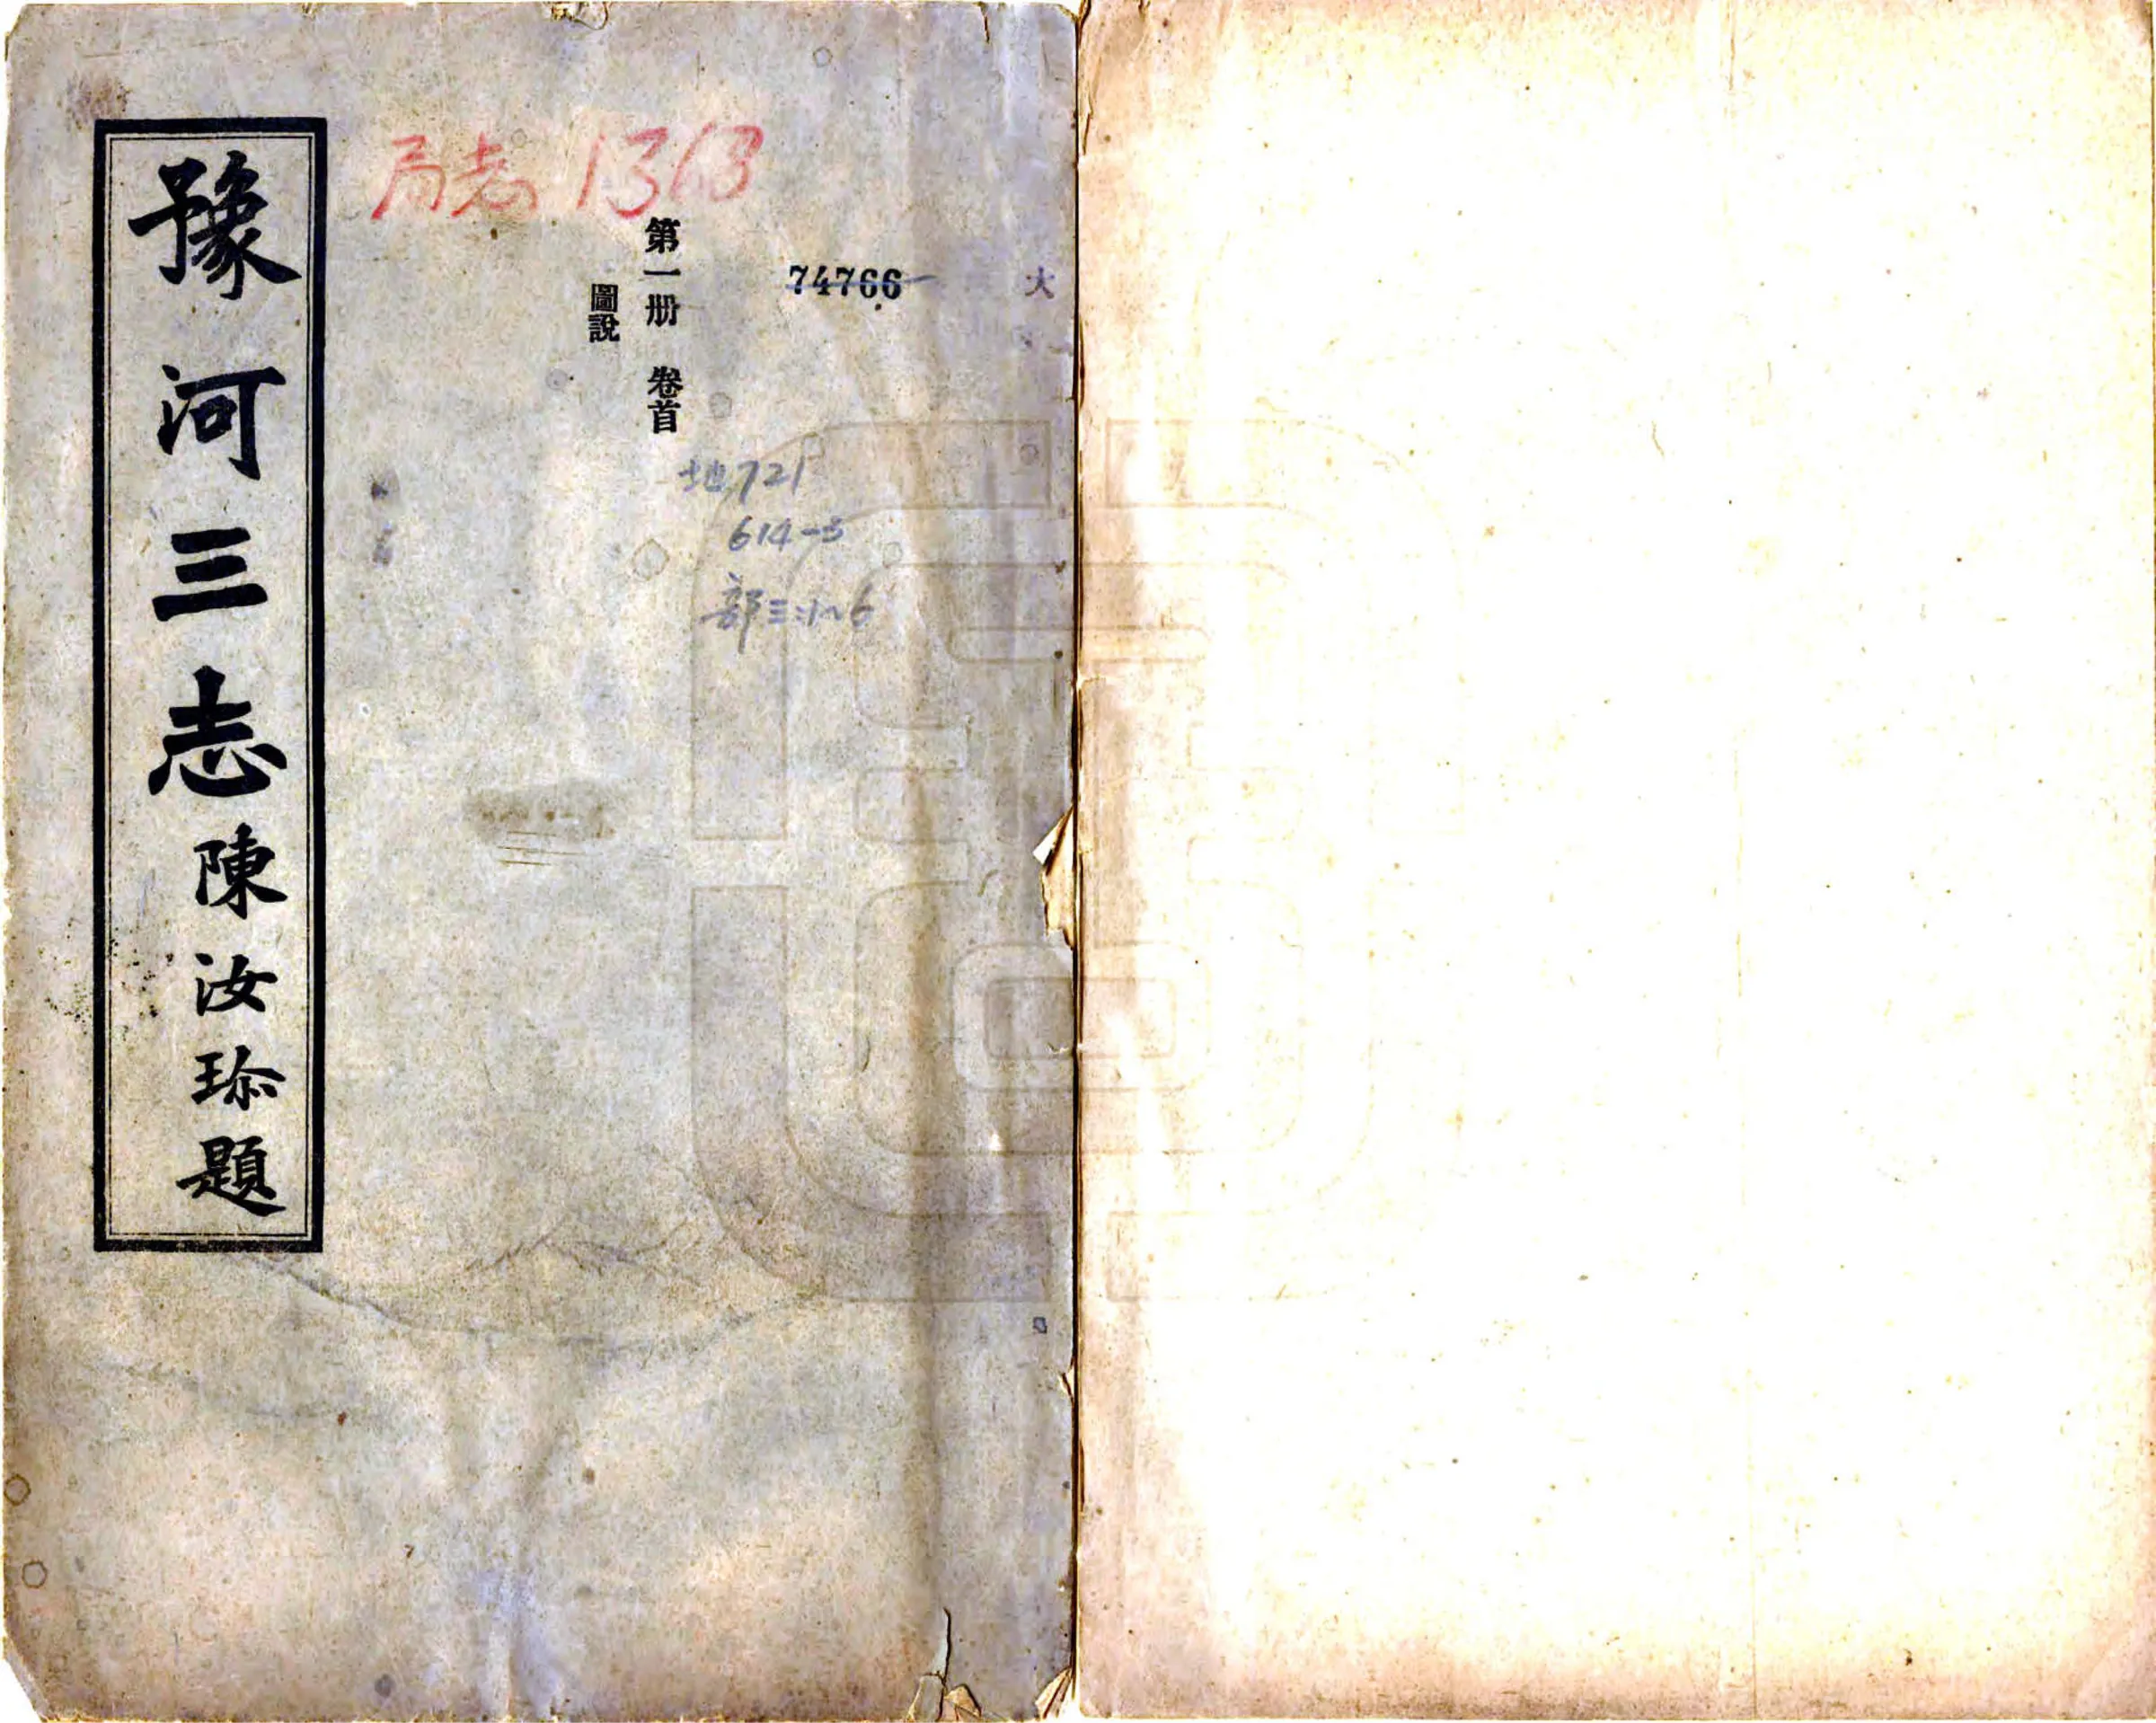 局志 1363
74766
大
第一册 卷首
圖說
地721
614-3
部三:1~6
豫河三志
陳汝珍題